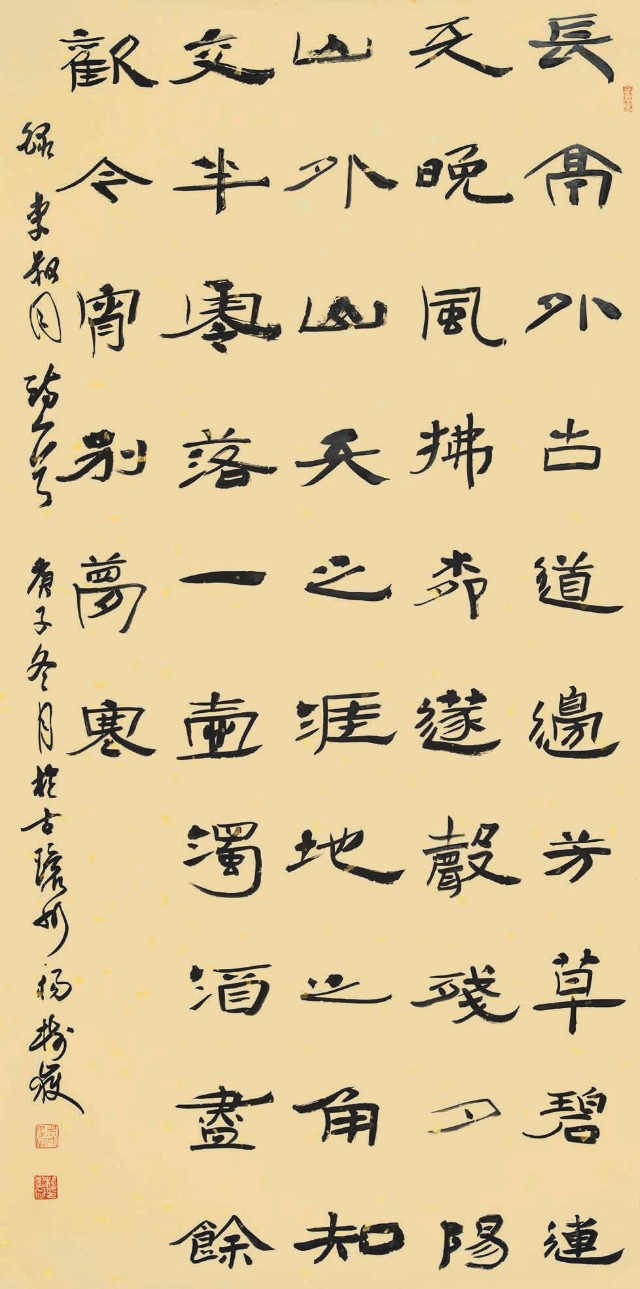 長亭外古道邊芳草碧連
天晚風拂柳篴聲殘夕陽
山外山天之涯地之角知
交半零落一壺濁酒盡餘
歡今宵別夢寒
錄李叔同詩一首 庚子冬月於古州 楊樹